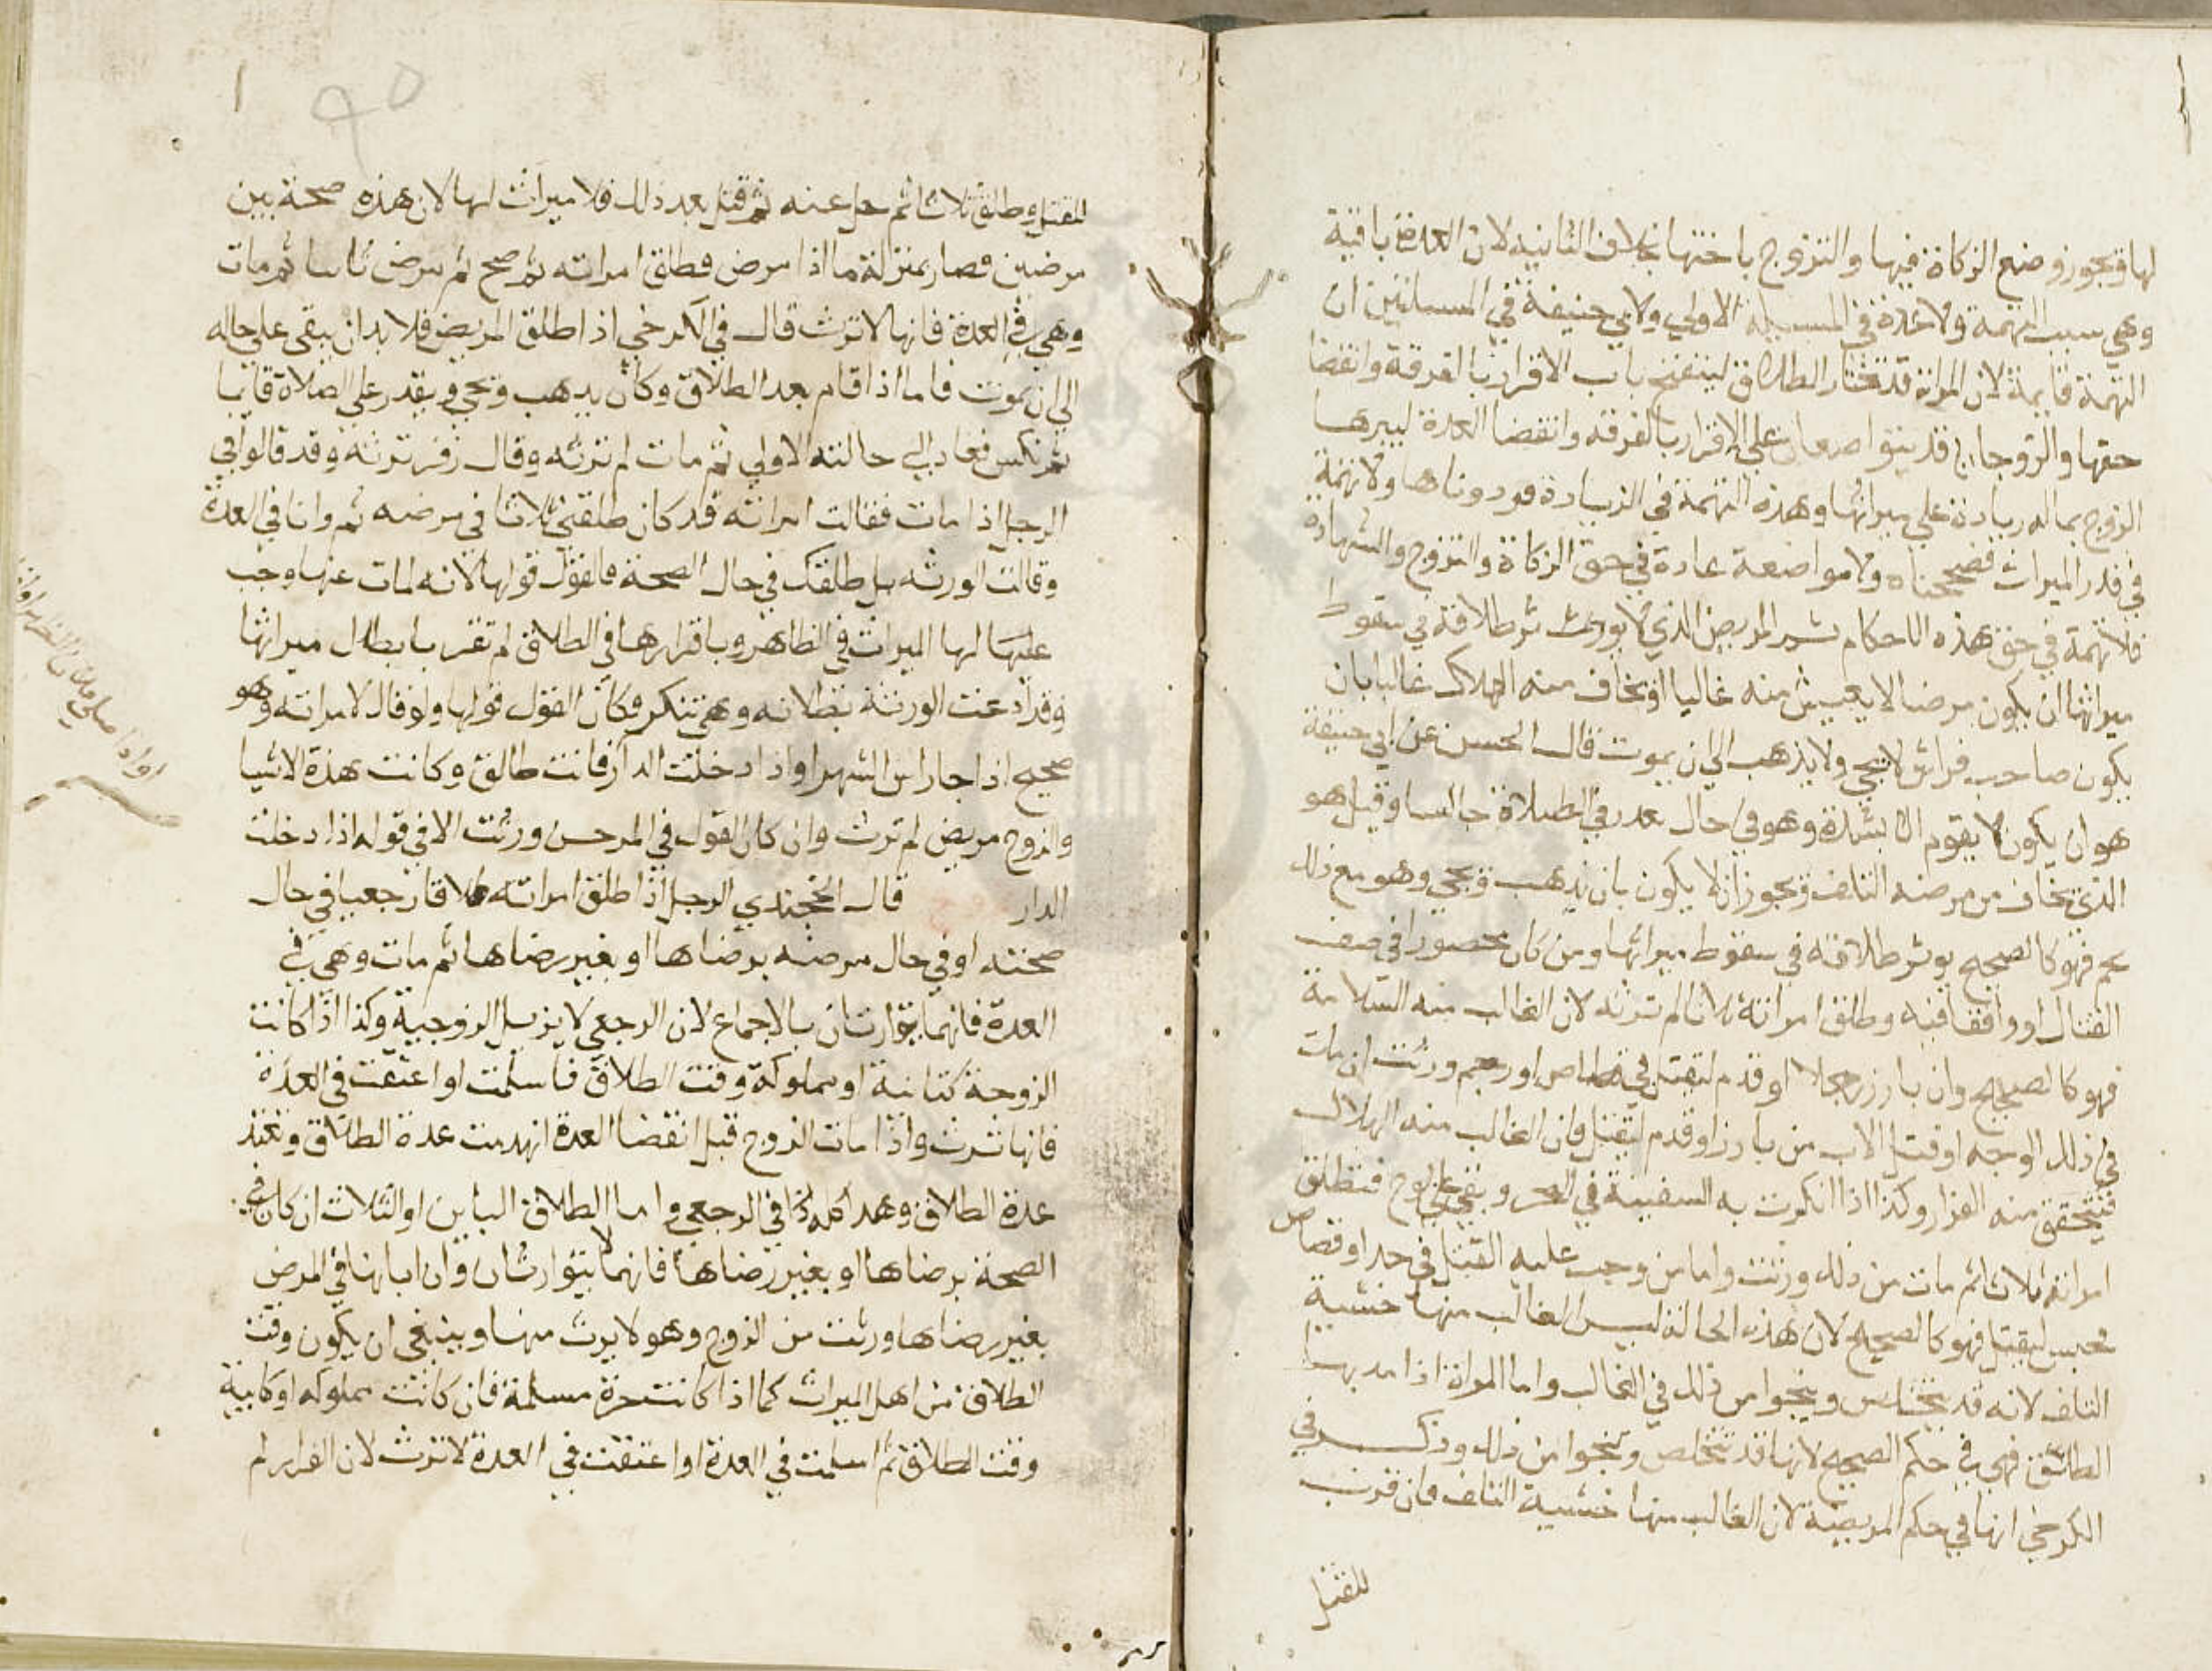 لها ويجوز وضع الزكاة فيها والتزوج باختها بخلاف الثانيه لان العدة باقية
وهي سبب التهمة ولا عدة في المسيلة الاولي ولابي حنيفة في المسالتين ان
التهمة قايمة لان المراة قد تختار الطلاق لينفتح باب الاقرار بالفرقة وانقضا
حقها والزوجان قد يتواضعان علي الاقرار بالفرقه وانقضا العدة ليبرها
الزوج بماله زيادة علي ميراثها وهذه التهمة في الزيادة فرددناها ولا تهمة
في قدر الميراث فصححناه ولا مواضعة عادة في حق الزكاة والتزوج والشهادة
فلا تهمة في حق هذه الاحكام ثم المريض الذي لا يورث طلاقه في سقوط
ميراثها ان يكون مرضا لا يعيش منه غالبا او يخاف منه الهلاك غالبا بان
يكون صاحب فراش لا يجي ولا يذهب الي ان يموت قال الحسن عن ابي حنيفة
هو ان يكون لا يقوم الا بشدة وهو في حال يعذر في الصلاة جالسا وقيل هو
الذي يخاف من مرضه التلف ويجوز ان لا يكون بان يذهب ويجي وهو مع ذلك
يحم فهو كالصحيح يوثر طلاقه في سقوط ميراثها ومن كان محصورا في صف
القتال او واقفا فيه وطلق امراته ثلاثا لم ترثه لان الغالب منه السلامة
فهو كالصحيح وان بارز رجلا او قدم ليقتل في قصاص او رجم ورثت ان مات
في ذلك الوجه او قتل الاب من بارز او قدم ليقتل فان الغالب منه الهلاك
فيتحقق منه الفرار وكذا اذا انكرت به السفينة في البحر وبقي علي لوح فتطلق
امراته ثلاثا ثم مات من ذلك ورثت واما من وجب عليه القتل في حد او قصاص
فحبس ليقتل فهو كالصحيح لان هذه الحالة ليس الغالب منها خشية
التلف لانه قد يتخلص وينجوا من ذلك في الغالب واما المراة اذا مد بها
الطلق فهي في حكم الصحيح لانها قد تتخلص وتنجوا من ذلك وذكر في
الكرخي انها في حكم المريضة لان الغالب منها خشية التلف فان قرب
للقتل
للقتل وطلق ثلاثا ثم حل عنه ثم قتل بعد ذلك فلا ميراث لها لان هذه صحة بين
مرضين فصار بمنزلة ما اذا مرض فطلق امراته ثم صح ثم مرض ثانيا ثم مات
وهي في العدة فانها لا ترث قال في الكرخي اذا طلق المريض فلا بد ان يبقي علي حاله
الي ان يموت فاما اذا قام بعد الطلاق وكان يذهب ويجي ويقدر علي الصلاة قايما
ثم نكس فعاد الي حالته الاولي ثم مات لم ترثه وقال زفر ترثه وقد قالوا في
الرجل اذا مات فقالت امراته قد كان طلقني ثلاثا في مرضه ثم وانا في العدة
وقالت الورثه بل طلقك في حال الصحة فالقول قولها لانه لمات عنها وجب
عليها لها الميراث في الظاهر وباقرارها في الطلاق لم تقر بابطال ميراثها
وقد ادعت الورثة بطلانه وهي تنكر فكان القول قولها ولو قال لامراته وهو
صحيح اذا جا راس الشهر او اذا دخلت الدار فانت طالق وكانت هذه الاشيا
والزوج مريض لم ترث وان كان القول في المرض ورثت الا في قوله اذا دخلت
الدار قال الخجندي الرجل اذا طلق امراته طلاقا رجعيا في حال
صحته او في حال مرضه برضاها او بغير رضاها ثم مات وهي في
العدة فانهما يتوارثان بالاجماع لان الرجعي لا يزيل الزوجية وكذا اذا كانت
الزوجة كتابية او مملوكة وقت الطلاق فاسلمت او اعتقت في العدة
فانها ترث واذا مات الزوج قبل انقضا العدة انهدمت عدة الطلاق وتعتد
عدة الطلاق وهذا كله اذا في الرجعي واما الطلاق الباين او الثلاث ان كان في
الصحة برضاها او بغير رضاها فانهما لا يتوارثان وان ابانها في المرض
بغير رضاها ورثت من الزوج وهو لا يرث منها وينبغي ان يكون وقت
الطلاق من اهل الميراث كما اذا كانت حرة مسلمة فان كانت مملوكه او كتابية
وقت الطلاق ثم اسلمت في العدة او اعتقت في العدة لا ترث لان الفرار لم
او اذا صلي فلان الظهر